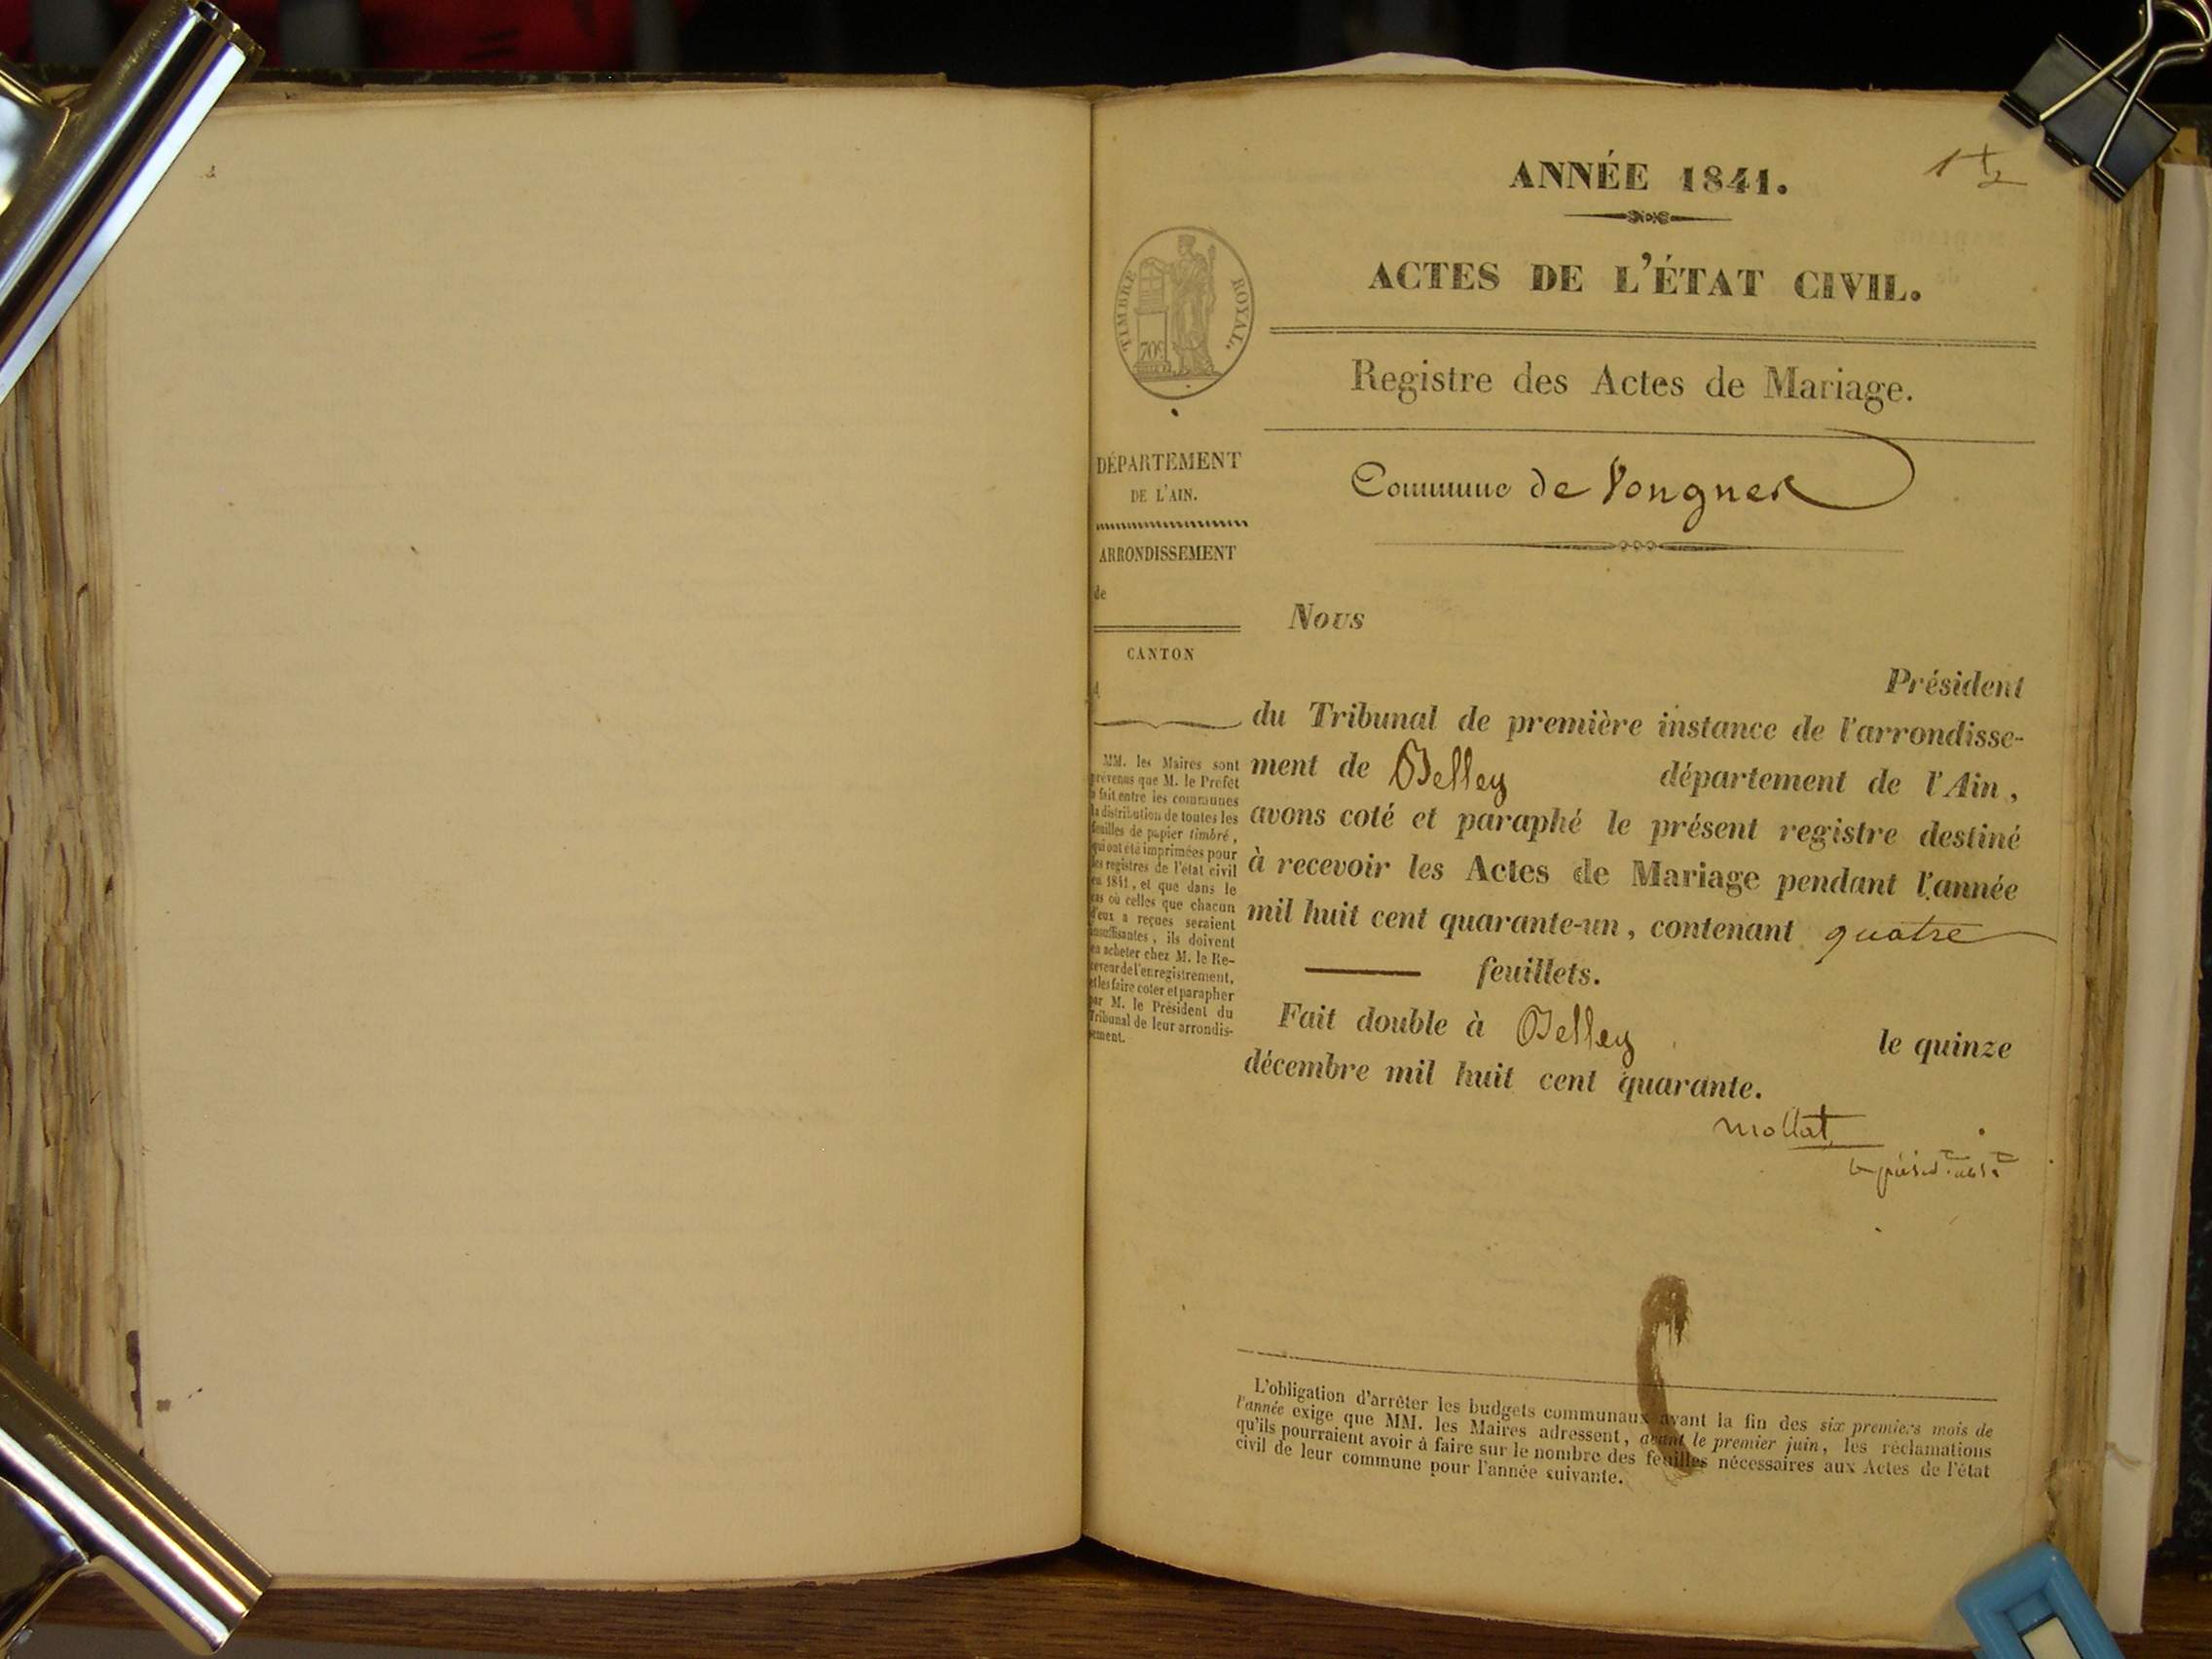 ANNÉE 1841.
ACTES DE L'ÉTAT CIVIL.
TIMBRE ROYAL.
70c
Registre des Actes de Mariage.
DÉPARTEMENT
DE L'AIN.
Commune de Vongnes
ARRONDISSEMENT
de
CANTON
Nous
Président
du Tribunal de première instance de l'arrondisse-
ment de Belley département de l'Ain,
avons coté et paraphé le présent registre destiné
à recevoir les Actes de Mariage pendant l'année
mil huit cent quarante-un, contenant quatre
feuillets.
Fait double à Belley le quinze
décembre mil huit cent quarante.
Mollat
MM. les Maires sont
prévenus que M. le Préfet
a fait entre les communes
la distribution de toutes les
feuilles de papier timbré,
qui ont été imprimées pour
les registres de l'état civil
en 1841, et que dans le
cas où celles que chacun
d'eux a reçues seraient
insuffisantes, ils doivent
en acheter chez M. le Re-
ceveur de l'enregistrement,
et les faire coter et parapher
par M. le Président du
Tribunal de leur arrondis-
sement.
L'obligation d'arrêter les budgets communaux avant la fin des six premiers mois de
l'année exige que MM. les Maires adressent, avant le premier juin, les réclamations
qu'ils pourraient avoir à faire sur le nombre des feuilles nécessaires aux Actes de l'état
civil de leur commune pour l'année suivante.